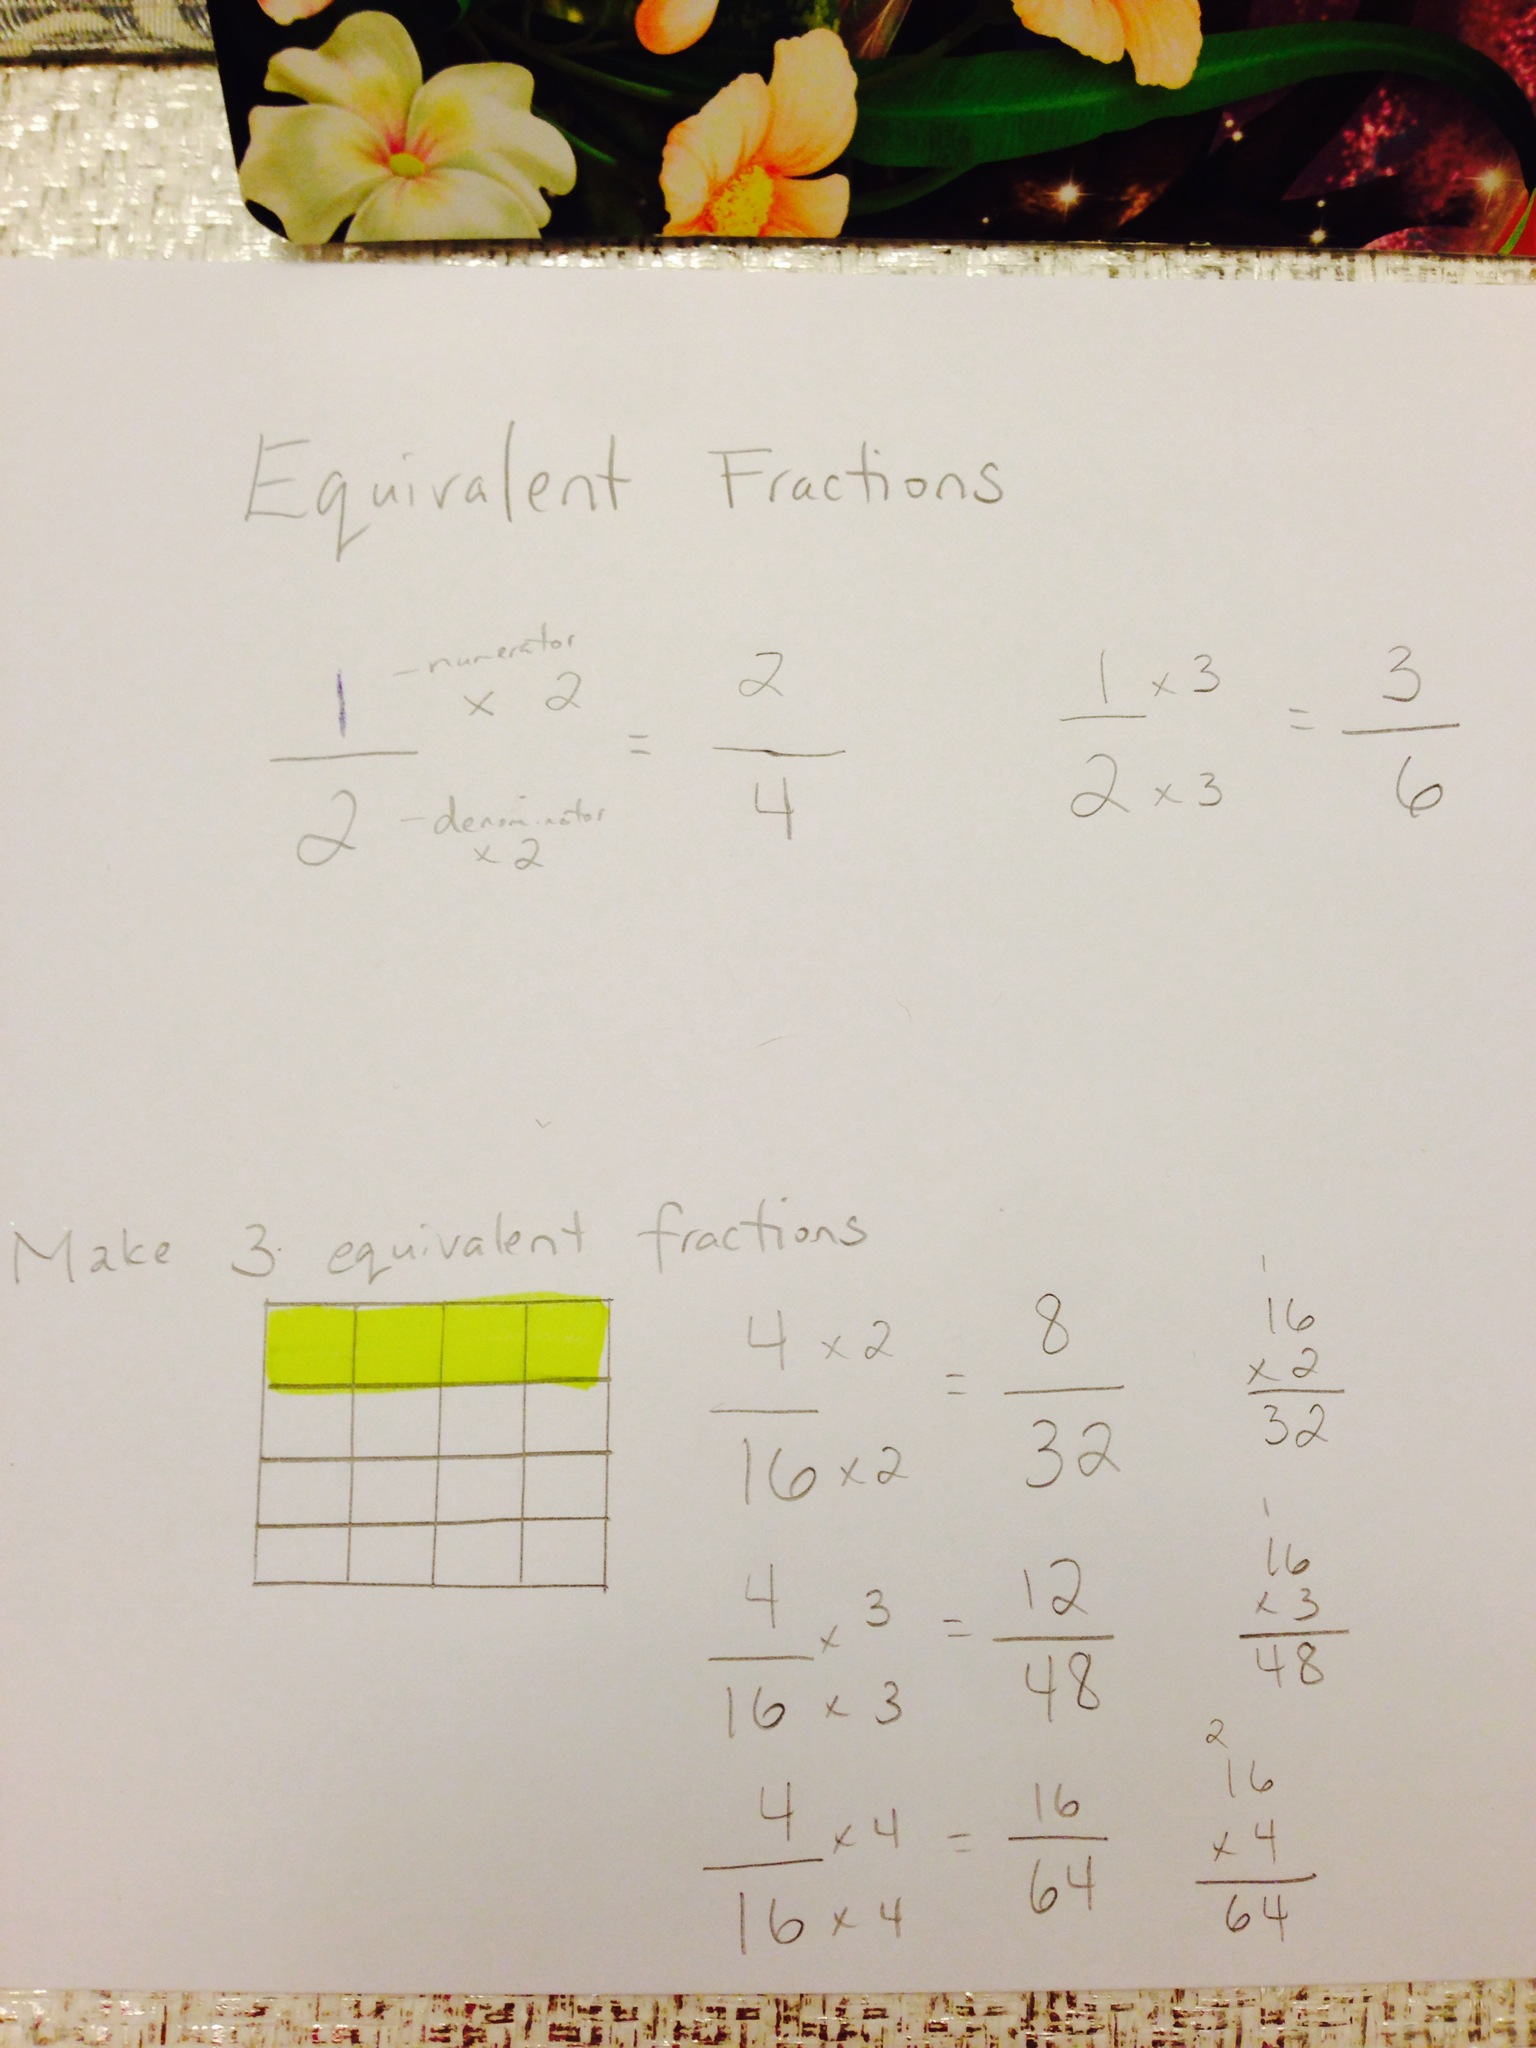 Equivalent Fractions
1 - numerator x 2 = 2
2 - denominator x 2 4
1 x 3 = 3
2 x 3 6
Make 3 equivalent fractions
4 x 2 = 8
16 x 2 32
1
16
x 2
32
4 x 3 = 12
16 x 3 48
1
16
x 3
48
4 x 4 = 16
16 x 4 64
2
16
x 4
64